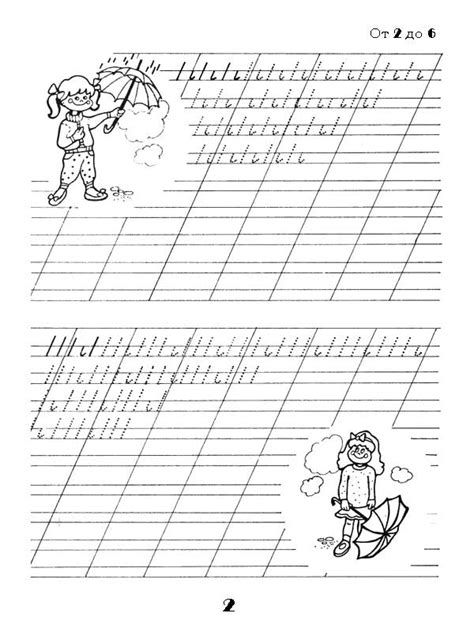 От 2 до 6
2